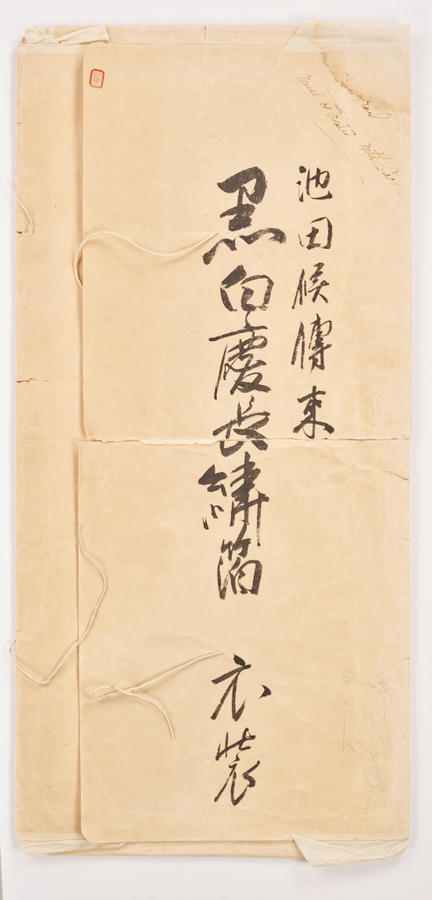 池田侯傳来
黒白慶長繍箔 衣裳